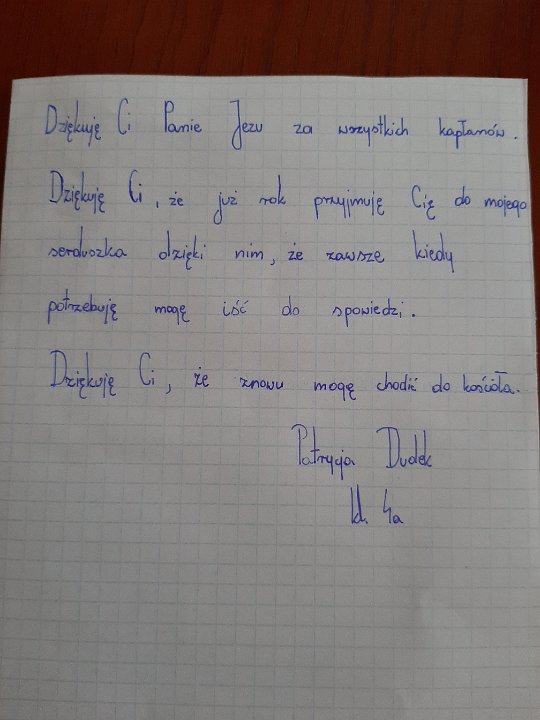 Dziękuję Ci Panie Jezu za wszystkich kapłanów.
Dziękuję Ci, że już rok przyjmuję Cię do mojego
serduszka dzięki nim, że zawsze kiedy
potrzebuję mogę iść do spowiedzi.
Dziękuję Ci, że znowu mogę chodić do kościoła.
Patrycja Dudek
kl. 4a